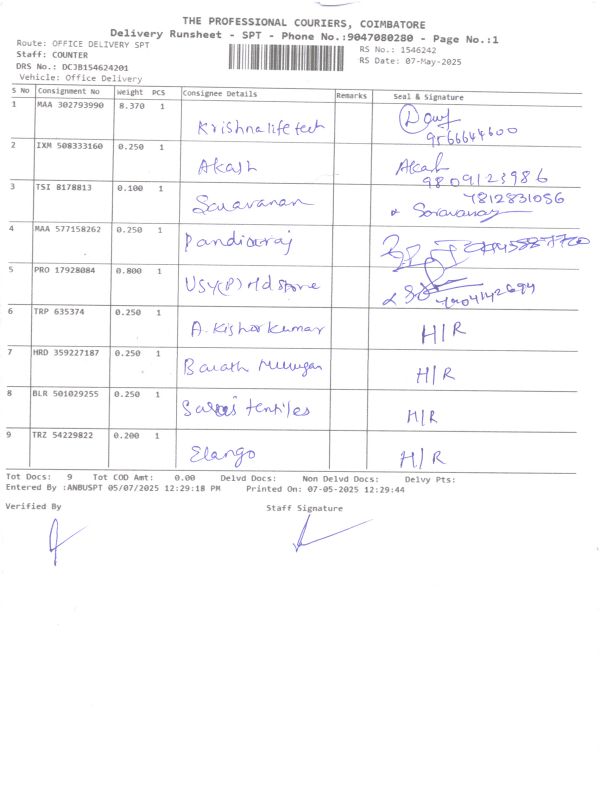 THE PROFESSIONAL COURIERS, COIMBATORE
Delivery Runsheet - SPT - Phone No.:9047080280 - Page No.:1
Route: OFFICE DELIVERY SPT
Staff: COUNTER
DRS No.: DCJB154624201
Vehicle: Office Delivery
RS No.: 1546242
RS Date: 07-May-2025
S No Consignment No Weight PCS Consignee Details Remarks Seal & Signature
1 MAA 302793990 8.370 1 Krishna life tech
9566644600
2 IXM 508333160 0.250 1 Akash Akash
9809123986
3 TSI 8178813 0.100 1 Saravanan 7812831056
Saravanan
4 MAA 577158262 0.250 1 Pandiaraj
5 PRO 17928084 0.800 1
6 TRP 635374 0.250 1 A. Kishor Kumar H/R
7 HRD 359227187 0.250 1 Barath Murugan H/R
8 BLR 501029255 0.250 1 H/R
9 TRZ 54229822 0.200 1 Elango H/R
Tot Docs: 9 Tot COD Amt: 0.00 Delvd Docs: Non Delvd Docs: Delvy Pts:
Entered By :ANBUSPT 05/07/2025 12:29:18 PM Printed On: 07-05-2025 12:29:44
Verified By Staff Signature